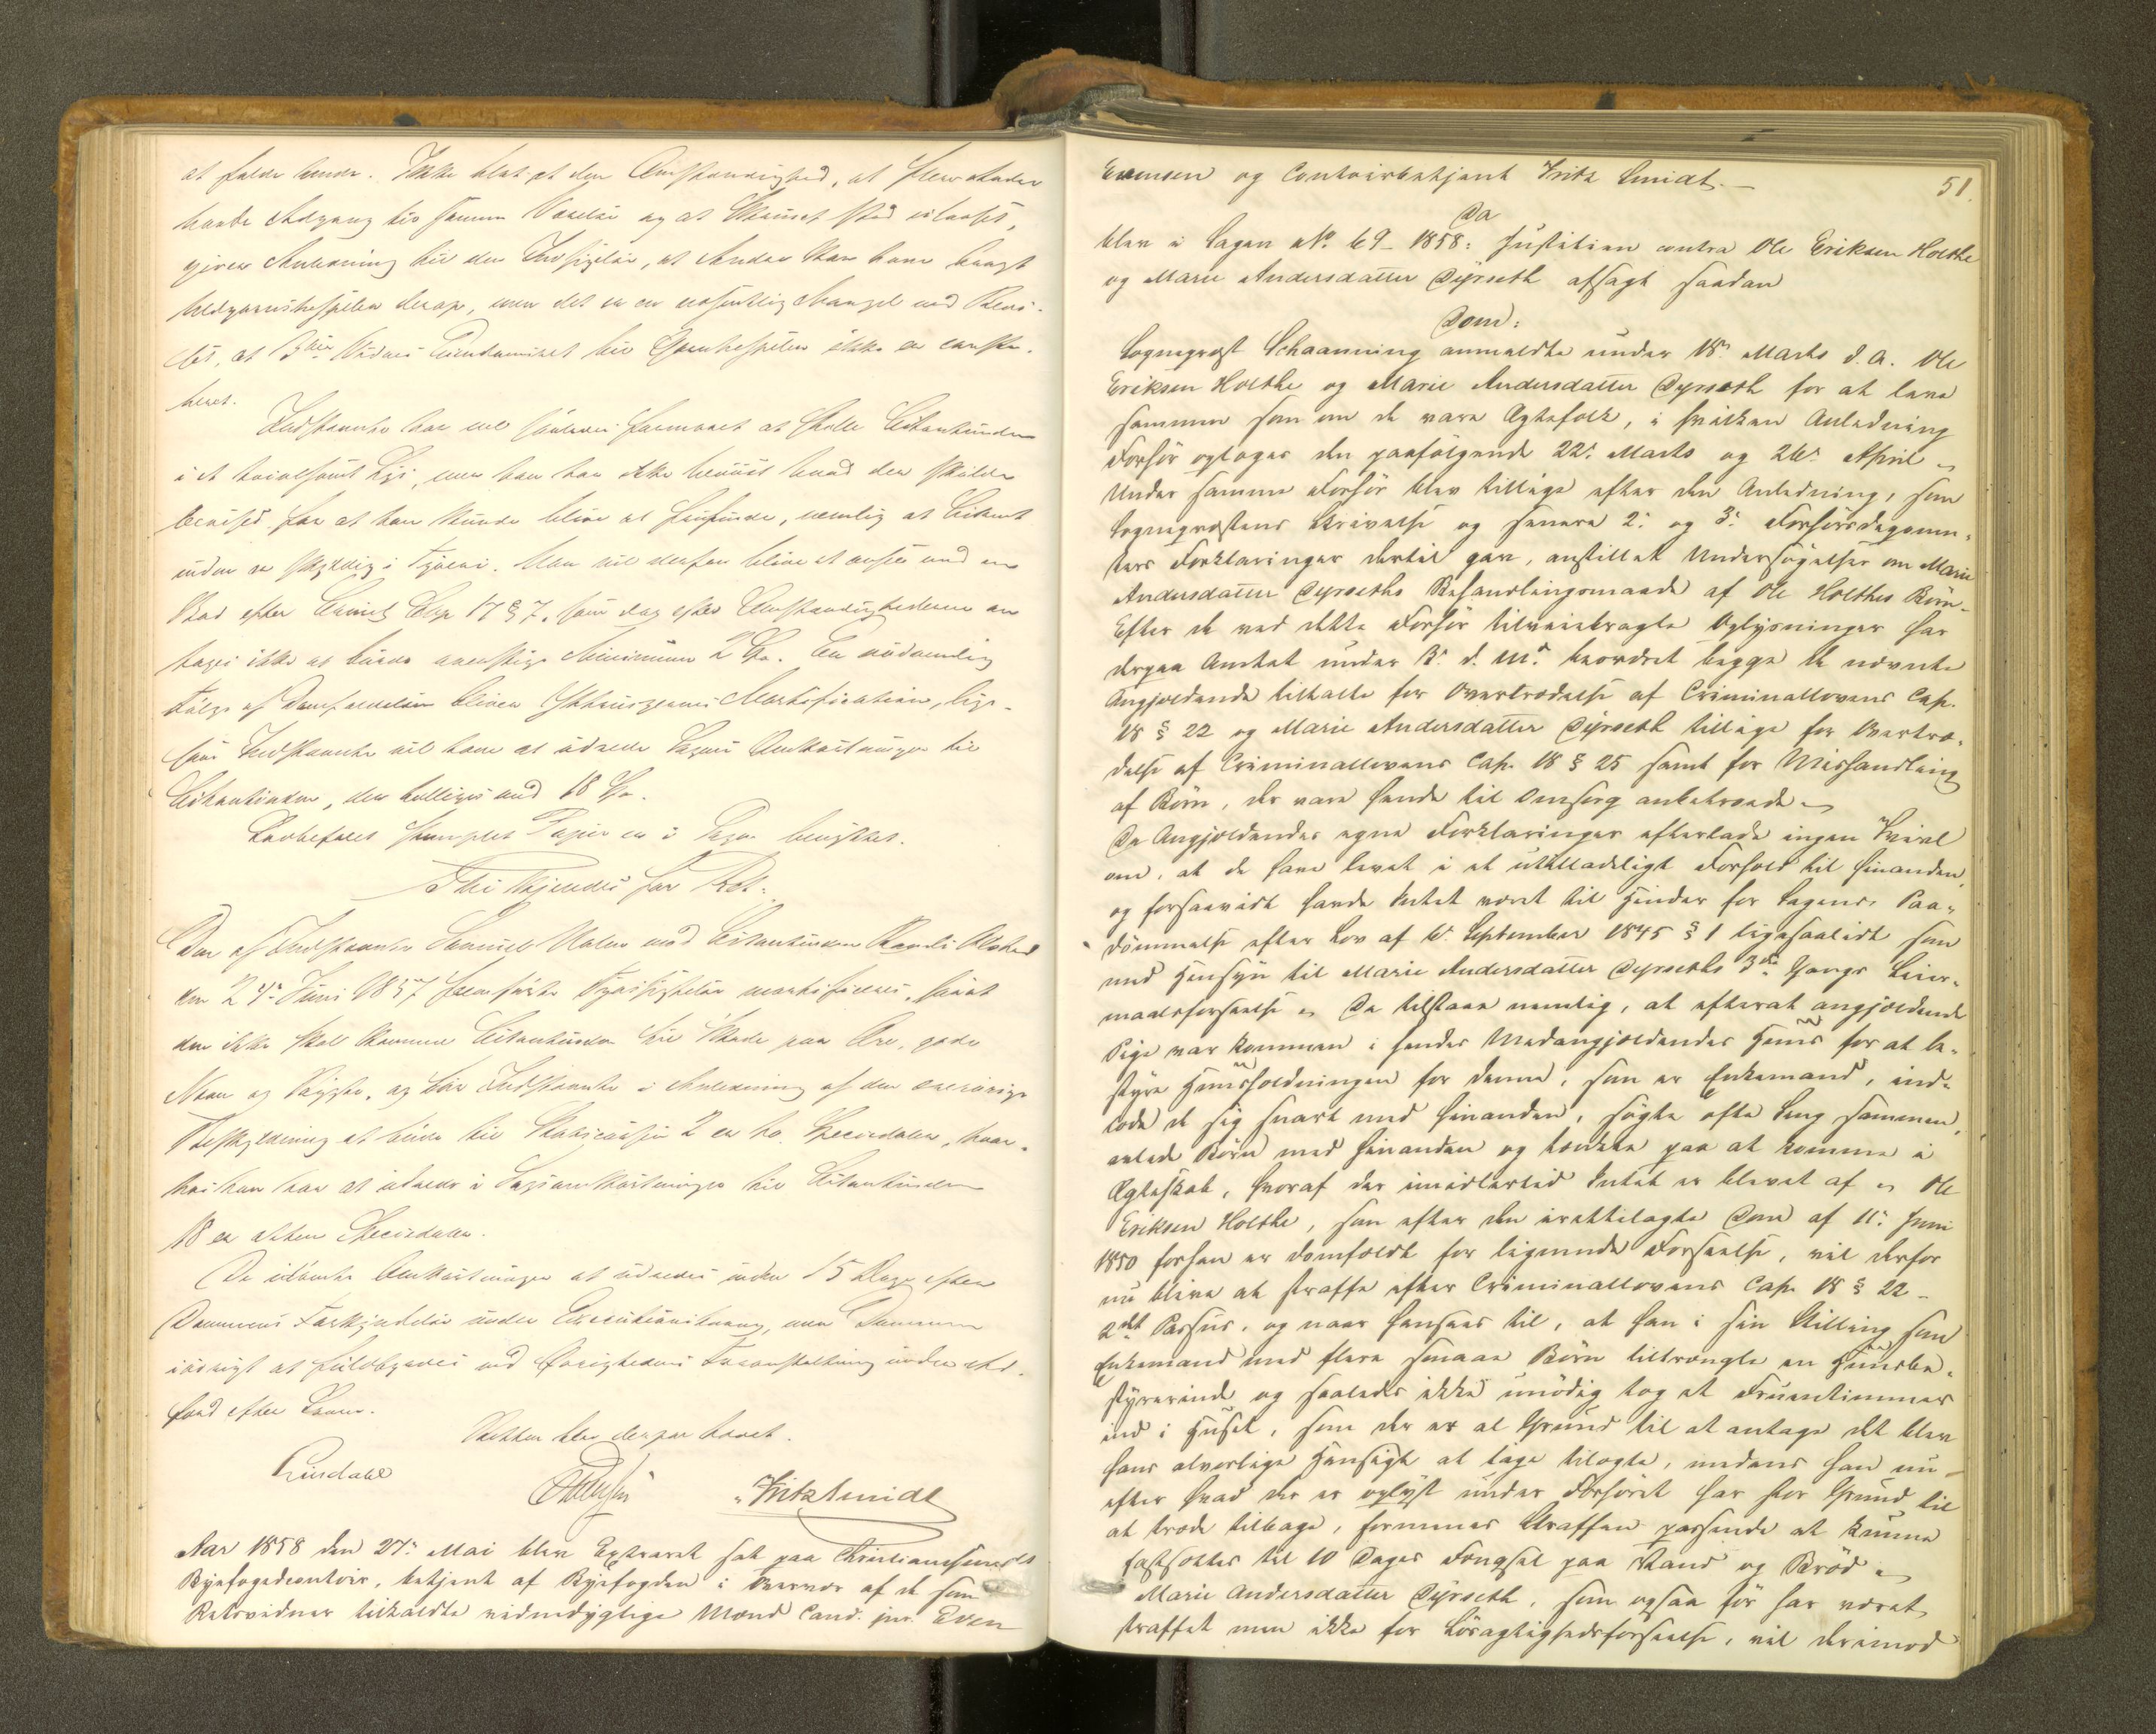 at falde hende. Ikke blot at den Omstændighed, at flere Andre
havde Adgang til samme Værelse og at Skrinet stod ulaaset,
giver Anledning til den Indsigelse, at Andre kan have bragt
Uldgarnshespelen derop, men det er en væsentlig Mangel ved Bevi-
set, at 3die Vidnes Eiendomsret til Garnhespelen ikke er constate-
Indstævnte har vel saaledes formaaet at stille Citantinden
i et tvivlsomt Lys, men han har ikke beviist hvad der skulde
bevises for at han kunde blive at frifinde, nemlig at Citant
inden er skyldig i Tyveri. Han vil derfor blive at ansee med en
Bod efter Criml. Cap 17 § 7, som dog efter Omstændighederne an
tages ikke at burde overstige Minimum 2 Spd. En nødvendig
Følge af Domfældelsen bliver Yttringernes Mortification, lige-
som Indstævnte vil have at udrede Sagens Omkostninger til
Citantinden, der billiges med 18 Spd.
Lovbefalet stemplet Papir er i Sagen benyttet.
Thi kjendes for Ret:
De af Indstævnte mod Citantinden Randi
den 24de Juni 1857 fremførte Tyvssigtelser mortificeres, saa at
den ikke skal komme Citantinden til Skade paa Ære, gode
Navn og Rygte, og bør Indstævnte i Anledning af den ærerørige
Beskyldning at bøde til Statscassen 2 er to Speciedaler, hvor-
hos han har at udrede i Sagsomkostninger til Citantinden
18 er atten Speciedaler.
De idømte Omkostninger at udredes inden 15 Dage efter
Dommens Forkyndelse under Executionstvang, men Dommen
iøvrigt at fuldbyrdes ved Øvrighedens Foranstaltning under Ad-
færd efter Loven.
Retten blev derpaa hævet.
Lindahl Fritz Smidt
Aar 1858 den 27de Mai blev Extraret sat paa Christianssunds
Byfogedcontoir, betjent af Byfogden i Overvær af de som
Retsvidner tilkaldte vidnedygtige Mænd Cand. jur. Even
51.
Evensen og Contoirbetjent Fritz Smidt.
Da
blev i Sagen No. 69 - 1858: Justitien contra Ole Eriksen Holthe
og Marie Andersdatter Dyrseth afsagt saadan
Dom:
Sogneprest Schaanning anmeldte under 18de Marts d.A. Ole
Eriksen Holthe og Marie Andersdatter Dyrseth for at leve
sammen som om de vare Ægtefolk, i hvilken Anledning
Forhør optoges den paafølgende 22de Marts og 26de April.
Under samme Forhør blev tillige efter den Anledning, som
Sogneprestens Skrivelse og senere 2de og 3de Forhørsdeponen-
ters Forklaringer dertil gav, anstillet Undersøgelser om Marie
Andersdatter Dyrseths Behandlingsmaade af Ole Holthes Børn.
Efter de ved dette Forhør tilveiebragte Oplysninger har
derpaa Amtet under d. M. beordret begge de nævnte
Angjældende tiltalte for Overtrædelse af Criminallovens Cap.
18 § 22 og Marie Andersdatter Dyrseth tillige for Overtræ-
delse af Criminallovens Cap. 18 § 25 samt for Mishandling
af Børn, der vare hende til Omsorg anbetroede.
De Angjældendes egne Forklaringer efterlade ingen Tvivl
om, at de have levet i et utilladeligt Forhold til hinanden,
og forsaavidt havde Intet været til Hinder for Sagens Paa-
dømmelse efter Lov af 6. September 1845 § 1 ligesaalidt som
med Hensyn til Marie Andersdatter Dyrseths 3die Gangs Leier-
maalsforseelse. De tilstaae nemlig, at efterat angjældende
Pige var kommen i hendes Medangjældendes Huus for at be-
styre Huusholdningen for denne, som er Enkemand, ind-
lode de sig snart med hinanden, søgte ofte Seng sammen,
avlede Børn med hinanden og tænkte paa at komme i
Ægteskab, hvoraf der imidlertid Intet er blevet af. Ole
Eriksen Holthe, som efter den irettelagte Dom af 11te Juni
1850 forhen er domfældt for lignende Forseelse, vil derfor
nu blive at straffe efter Criminallovens Cap. 18 § 22
2det Passus, og naar hensees til, at han i sin Stilling som
Enkemand med flere smaae Børn tiltrængte en Huusbe-
styrerinde og saaledes ikke unødig tog et Fruentimmer
ind i Huset, som der er al Grund til at antage det blev
hans alvorlige Hensigt at tage tilægte, medens han nu
efter hvad der er oplyst under Forhøret har stor Grund til
at træde tilbage, formenes Straffen passende at kunne
fastsættes til 10 Dages Fængsel paa Vand og Brød.
Marie Andersdatter Dyrseth, som ogsaa før har været
straffet men ikke for Løsagtighedsforseelse, vil derimod